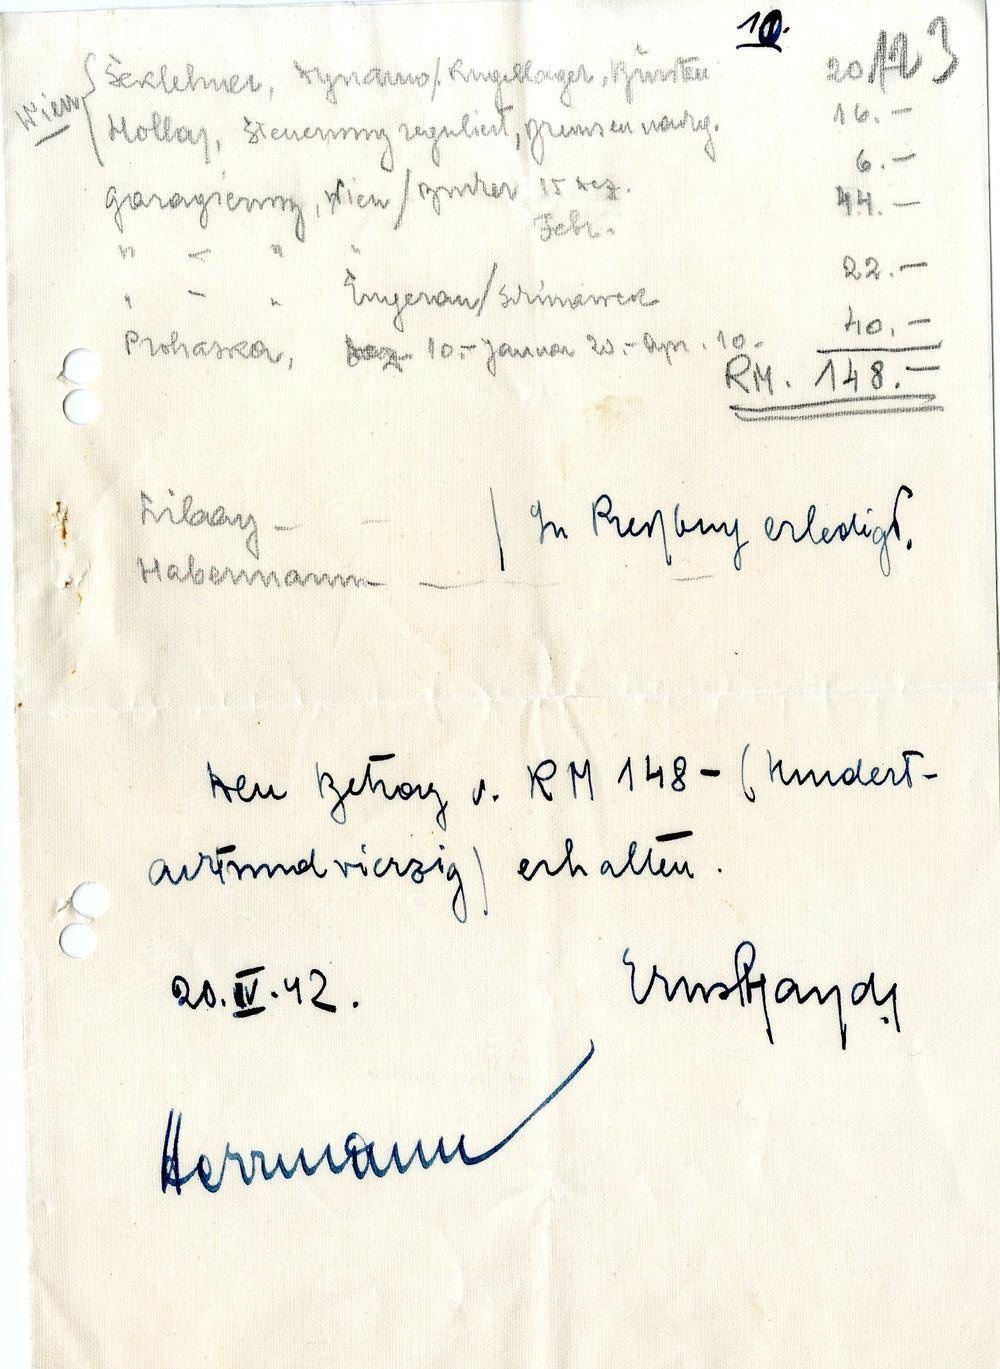 10.
123
Wien
Seklehner, Dynamo/Kugellager, Bürsten 20.-
Hollay, Steuerung reguliert, Bremsen nachg. 16.-
Garagierung, Wien / 15 Dez. 6.-
" " " " Febr. 44.-
" " " Engerau / 22.-
Prohaska, 10.- Januar 20.- Apr. 10.- 40.-
RM. 148.-
Habermann
In Preßburg erledigt.
Den Betrag v. RM 148- (Hundert-
achtundvierzig) erhalten.
20.IV.42.
Herrmann